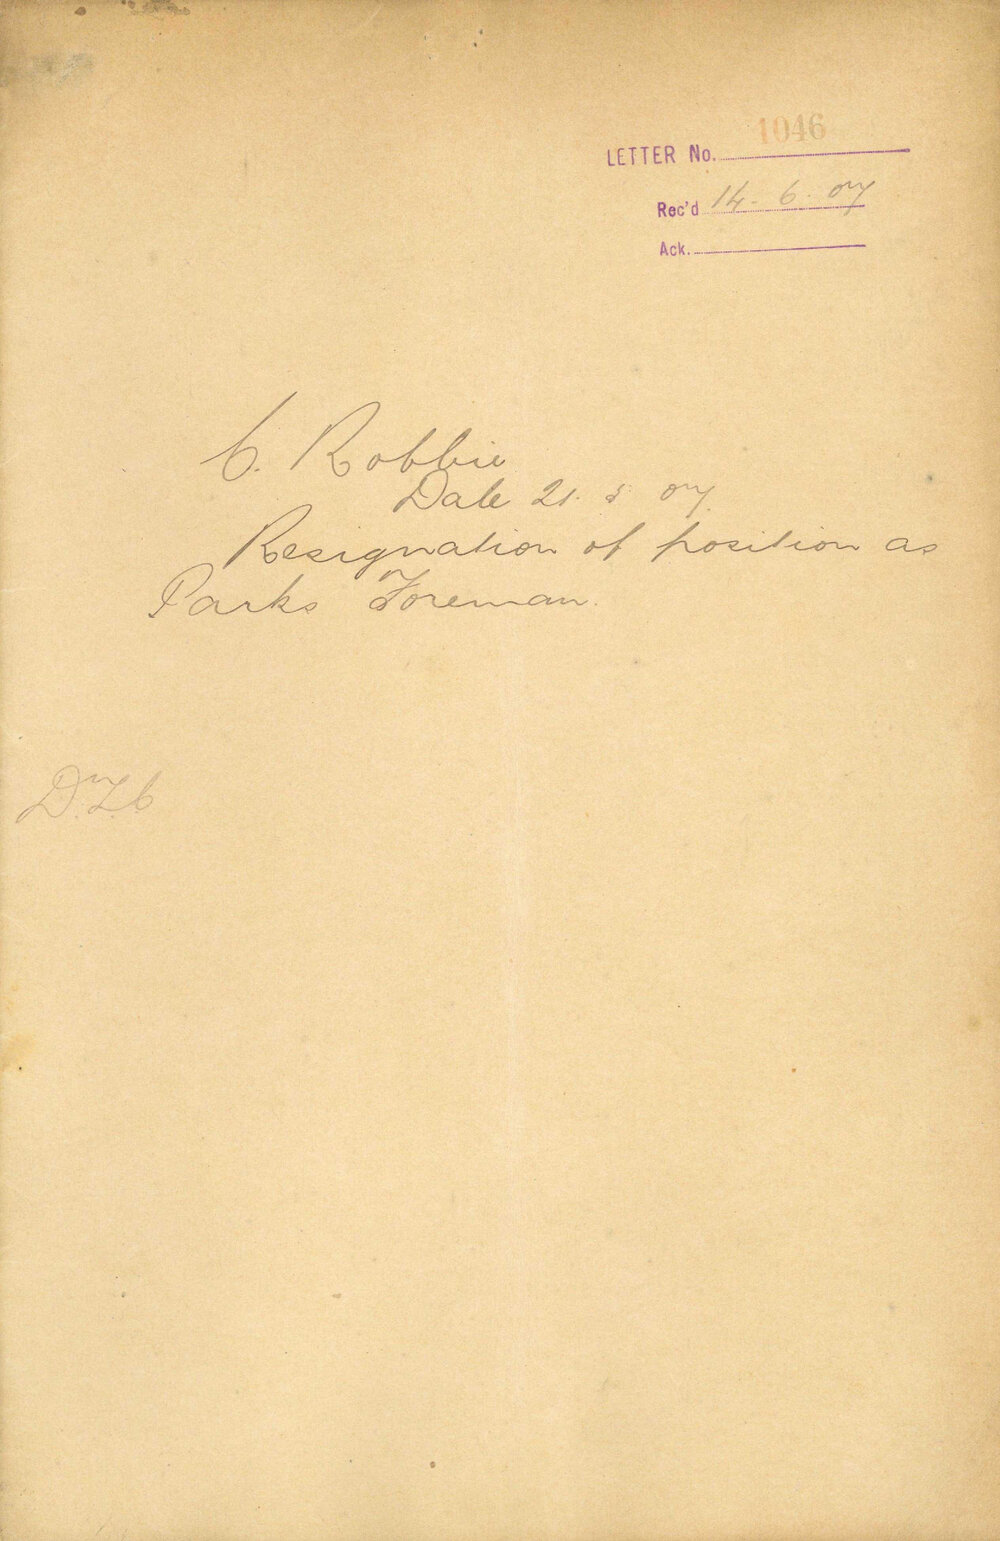 1046
LETTER No.
Rec'd 14. 6. 07
Ack.
C. Robbie
Date 21. 5. 07.
Resignation of position as
Parks Foreman.